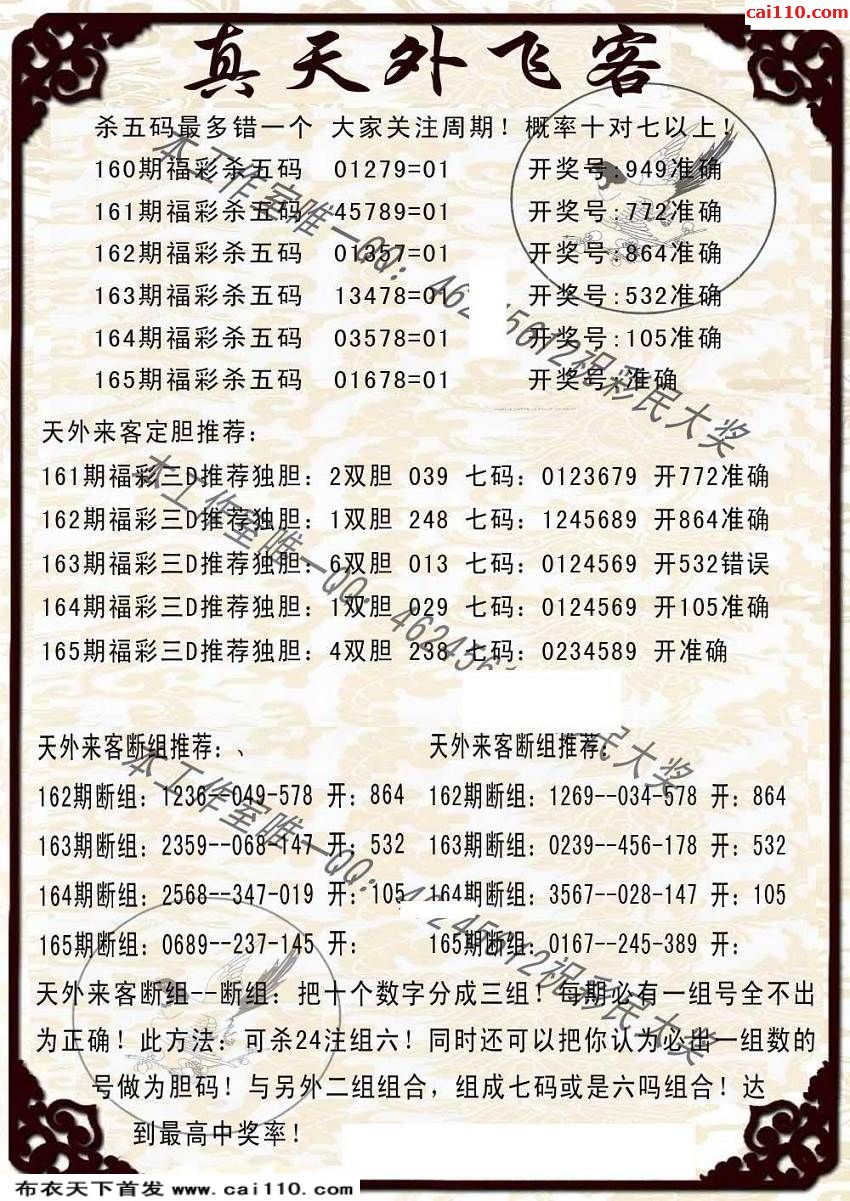 cai110.com
真天外飞客
杀五码最多错一个 大家关注周期！概率十对七以上！
160期福彩杀五码 01279=01 开奖号:949准确
161期福彩杀五码 45789=01 开奖号:772准确
162期福彩杀五码 01357=01 开奖号:864准确
163期福彩杀五码 13478=01 开奖号:532准确
164期福彩杀五码 03578=01 开奖号:105准确
165期福彩杀五码 01678=01 开奖号:准确
天外来客定胆推荐：
161期福彩三D推荐独胆：2双胆 039 七码：0123679 开772准确
162期福彩三D推荐独胆：1双胆 248 七码：1245689 开864准确
163期福彩三D推荐独胆：6双胆 013 七码：0124569 开532错误
164期福彩三D推荐独胆：1双胆 029 七码：0124569 开105准确
165期福彩三D推荐独胆：4双胆 238 七码：0234589 开准确
天外来客断组推荐：、
162期断组：1236--049-578 开：864
163期断组：2359--068-147 开：532
164期断组：2568--347-019 开：105
165期断组：0689--237-145 开：
天外来客断组推荐：
162期断组：1269--034-578 开：864
163期断组：0239--456-178 开：532
164期断组：3567--028-147 开：105
165期断组：0167--245-389 开：
天外来客断组--断组：把十个数字分成三组！每期必有一组号全不出
为正确！此方法：可杀24注组六！同时还可以把你认为必出一组数的
号做为胆码！与另外二组组合，组成七码或是六吗组合！达
到最高中奖率！
本工作室唯一QQ：46245612祝彩民大奖
布衣天下首发 www.cai110.com